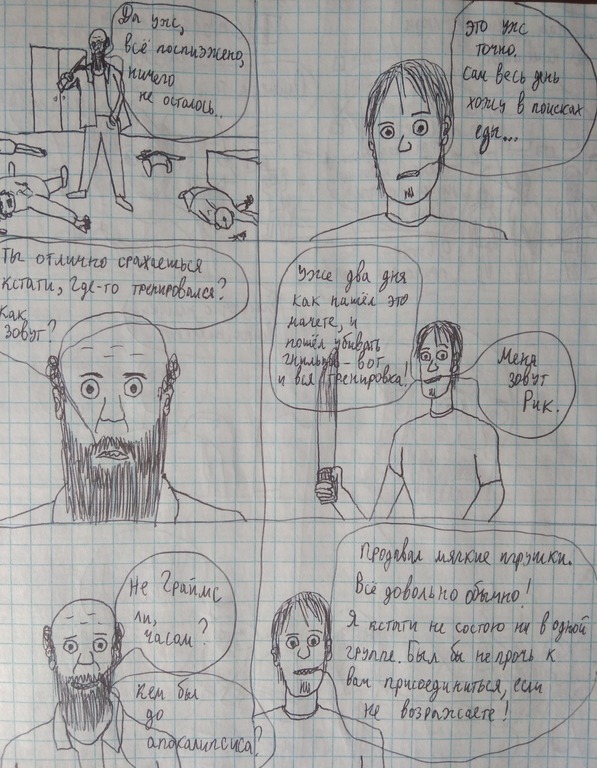 Да уж,
всё поспизжено,
ничего
не осталось..
Это уж
точно.
Сам весь день
хожу в поисках
еды...
Ты отлично сражаешься
кстати, где-то тренировался?
Как
зовут?
Уже два дня
как нашёл это
мачете, и
пошёл убивать
гнильцов - вот
и вся тренировка!
Меня
зовут
Рик.
Не Граймс
ли,
часом?
Кем был
до
апокалипсиса?
Продавал мягкие игрушки.
Всё довольно обычно!
Я кстати не состою ни в одной
группе. Был бы не прочь к
вам присоединиться, если
не возражаете!